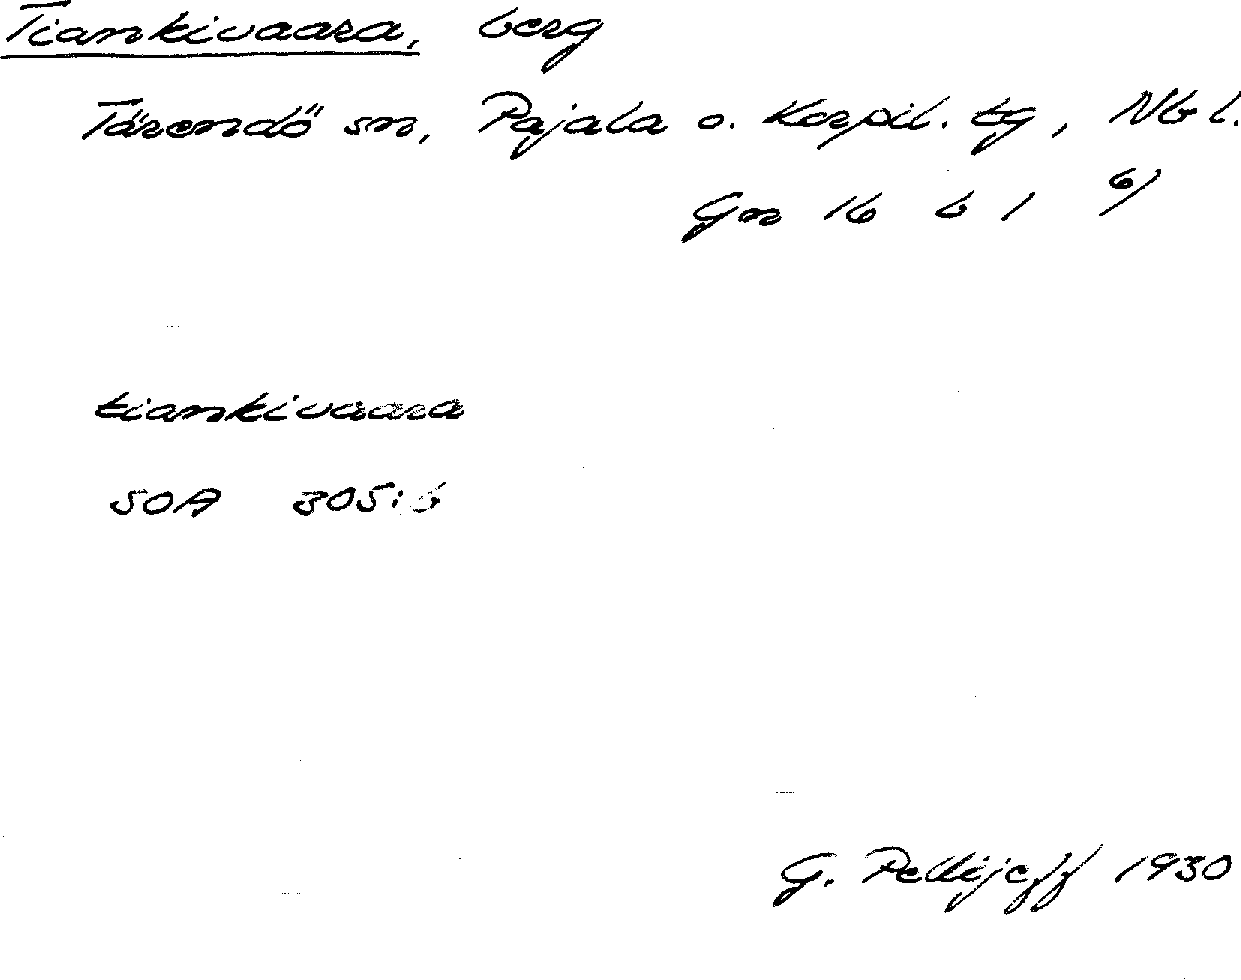 Tiankivaara, berg
Tärendö sn, Pajala o. Korpil. tg, Nb l.
Gn 16 b 1 6)
tiankivaara
SOA 305:6
G. Pellijeff 1930